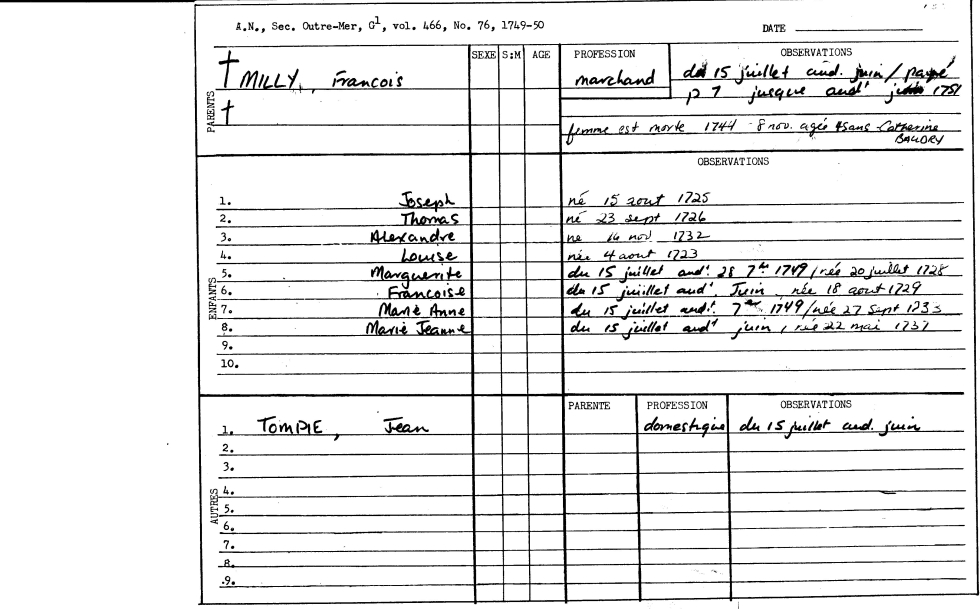 A.N., Sec. Outre-Mer, G1, vol. 466, No. 76, 1749-50
DATE
SEXE S:M AGE PROFESSION OBSERVATIONS
PARENTS
† MILLY, Francois marchand du 15 juillet aud. juin / payé
p 7 jusque aud' juin 1751
†
femme est morte 1744 8 nov. agée 45ans Catherine
BAUDRY
OBSERVATIONS
ENFANTS
1. Joseph né 15 aout 1725
2. Thomas né 23 sept 1726
3. Alexandre ne 14 nov 1732
4. Louise née 4 aout 1723
5. Marguerite du 15 juillet aud'. 28 7bre 1749 / née 20 juillet 1728
6. Francoise du 15 juillet aud'. Juin, née 18 aout 1729
7. Marie Anne du 15 juillet aud'. 7bre 1749 / née 27 sept 1733
8. Marie Jeanne du 15 juillet aud' juin, née 22 mai 1737
9.
10.
PARENTE PROFESSION OBSERVATIONS
AUTRES
1. TOMPIE, Jean domestique du 15 juillet aud. juin
2.
3.
4.
5.
6.
7.
8.
9.